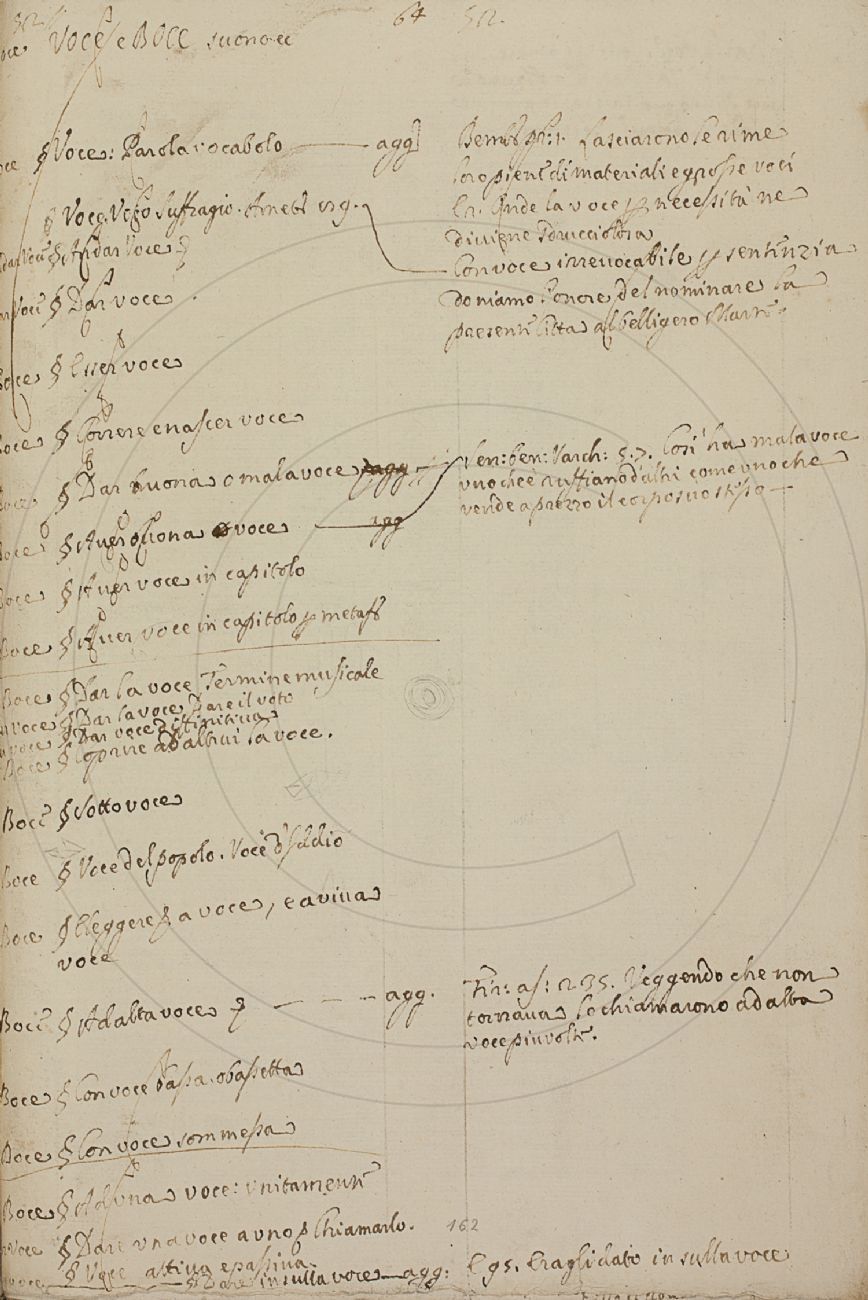 64 512.
Voce e Boce suono &c
§ Voce: Parola vocabolo — agg
§ Voce. Voto Suffragio.
§ Andar Voce
§ Dar voce
Boce § Esser voce
Boce § Correre e nascer voce
Boce § Dar buona o mala voce agg
Boce § Aver buona voce — agg
Boce § Aver voce in capitolo
Boce § Aver voce in capitolo p metaf
Boce § Dar la voce Termine musicale
voce § Dar la voce Dare il voto
voce § Dar voce diffinitiva
Boce § Coprire ad altrui la voce.
Boce § Sotto voce
Boce § Voce del popolo. Voce d'Iddio
Boce § Eleggere a voce, e a viva
voce
Boce § Ad alta voce — — — agg.
Boce § Con voce bassa. o bassetta
Boce § Con voce sommessa
Boce § Ad una voce: unitamente
Voce § Dare una voce a uno p chiamarlo.
§ Voce attiva e passiva.
§ Dare in sulla voce — agg:
Lasciarono le rime
loro piene di materiali e grosse voci
Onde la voce p necessità ne
diviene sdrucciolosa
Con voce irrevocabile p sentenzia
doniamo l'onore del nominare la
presente Citta al belligero Marte.
Sen: ben: Varch: 5. 7. Così ha mala voce
uno che è ruffiano d'altri come uno che
vende a prezzo il corpo suo stesso —
Fir: as: 235. Veggendo che non
tornava lo chiamarono ad alta
voce piu volte.
162
E gli dato in sulla voce